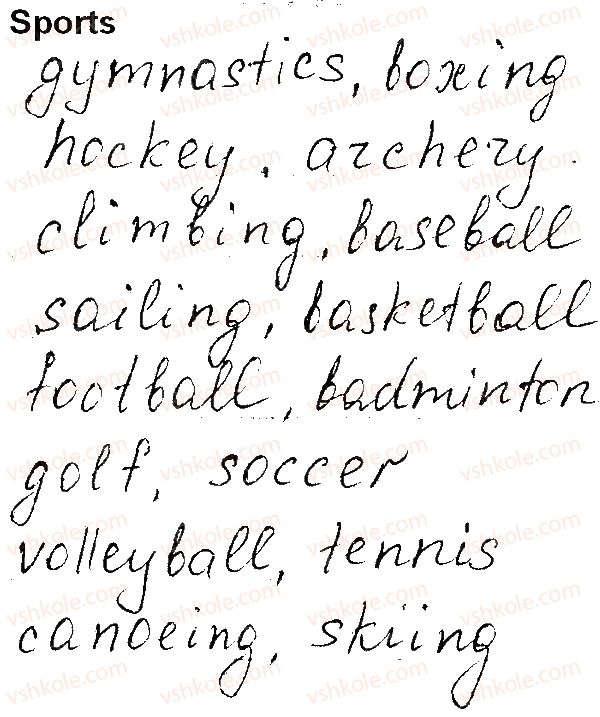 Sports
gymnastics, boxing
hockey, archery
climbing, baseball
sailing, basketball
football, badminton
golf, soccer
volleyball, tennis
canoeing, skiing
vshkole.com